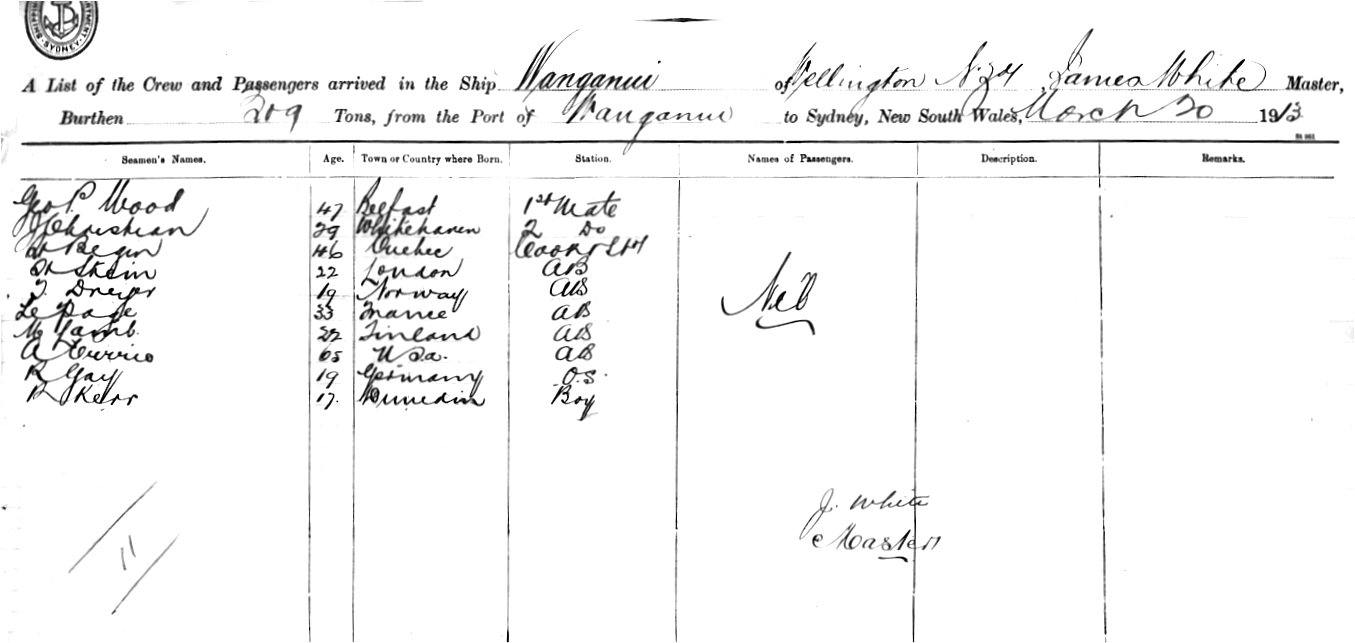 SHIPPING DEPARTMENT. SYDNEY.
A List of the Crew and Passengers arrived in the Ship Wanganui of Wellington N.Z. James White Master,
Burthen 209 Tons, from the Port of Wanganui to Sydney, New South Wales, March 20 1913
Seamen's Names. Age. Town or Country where Born. Station. Names of Passengers. Description. Remarks.
Geo P. Wood 47 Belfast 1st Mate
J Christian 29 Whitehaven 2 Do
Begin 46 Quebec Cook & Std
Stein 22 London AB
Dreyer 19 Norway AB
Le Page 33 France AB
Nil
M Lamb 22 Finland AB
A Currie 65 USa. AB
R Gay 19 Germany O.S.
R Kerr 17. Dunedin Boy
J. White
Master
11